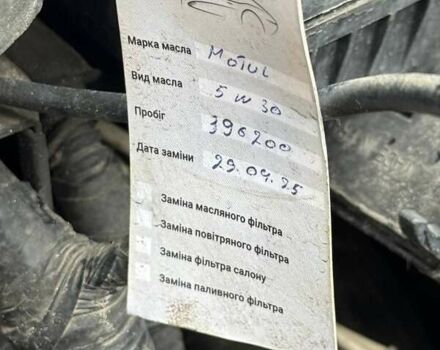 Марка масла MOTUL
Вид масла 5w30
Пробіг 396200
Дата заміни 29.04.25
Заміна масляного фільтра
Заміна повітряного фільтра
Заміна фільтра салону
Заміна паливного фільтра